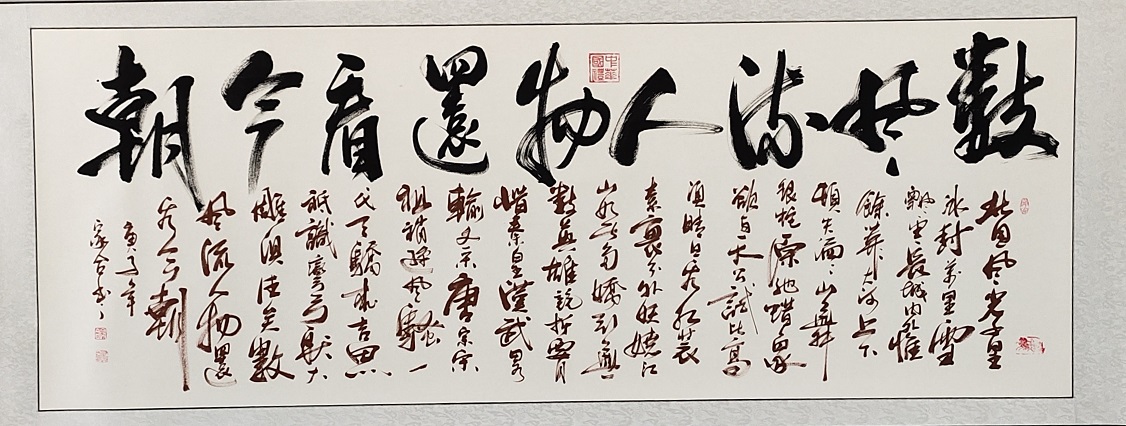 數風流人物還看今朝
中華國禮
北国风光千里
冰封萬里雪
飘望長城内外惟
餘莽大河上下
頓失滔滔山舞
银蛇原驰蜡象
欲与天公試比高
须晴日看红装
素裹分外妖娆江
山如此多嬌引無
數英雄競折腰
惜秦皇漢武略
輸文采唐宗宋
祖稍逊風騷一
代天驕成吉思
汗祇識彎弓射大
雕俱往矣數
風流人物還
看今朝
庚子年